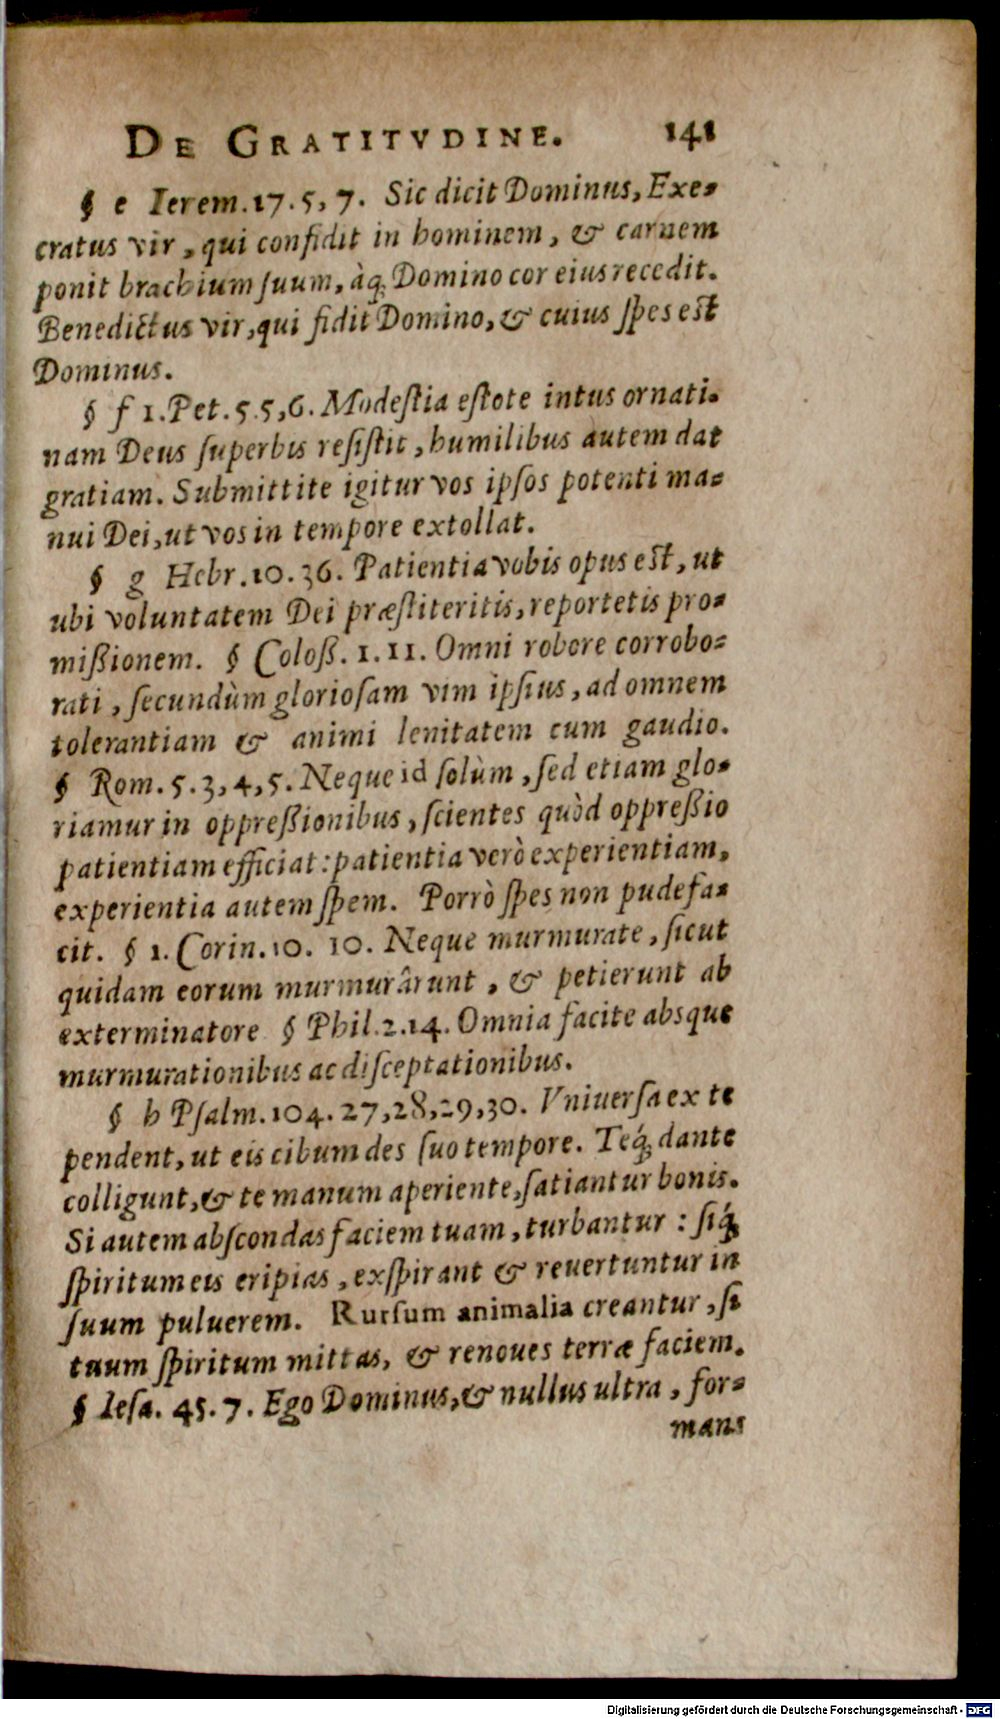 DE GRATITVDINE. 141
§ e Ierem.17.5, 7. Sic dicit Dominus, Exe-
cratus vir, qui confidit in hominem, & carnem
ponit brachium ſuum, àq; Domino cor eius recedit.
Benedictus vir, qui fidit Domino, & cuius ſpes est
Dominus.
§ f 1.Pet.5.5,6. Modeſtia eſtote intus ornati.
nam Deus ſuperbis reſiſtit, humilibus autem dat
gratiam. Submittite igitur vos ipſos potenti ma-
nui Dei, ut vos in tempore extollat.
§ g Hebr.10.36. Patientia vobis opus est, ut
ubi voluntatem Dei præſtiteritis, reportetis pro-
mißionem. § Coloß. 1.11. Omni robore corrobo-
rati, ſecundùm glorioſam vim ipſius, ad omnem
tolerantiam & animi lenitatem cum gaudio.
§ Rom. 5.3,4,5. Neque id ſolùm, ſed etiam glo-
riamur in oppreßionibus, ſcientes quòd oppreßio
patientiam efficiat: patientia verò experientiam,
experientia autem ſpem. Porrò ſpes non pudefa-
cit. § 1. Corin.10. 10. Neque murmurate, ſicut
quidam eorum murmurârunt, & petierunt ab
exterminatore § Phil.2.14. Omnia facite absque
murmurationibus ac diſceptationibus.
§ h Pſalm.104.27,28,29,30. Vniuerſa ex te
pendent, ut eis cibum des ſuo tempore. Teq́; dante
colligunt, & te manum aperiente, ſatiantur bonis.
Si autem abſcondas faciem tuam, turbantur : ſiq́;
ſpiritum eis eripias, exſpirant & reuertuntur in
ſuum puluerem. Rurſum animalia creantur, ſi
tuum ſpiritum mittas, & renoues terræ faciem.
§ Ieſa. 45.7. Ego Dominus, & nullus ultra, for-
mans
Digitalisierung gefördert durch die Deutsche Forschungsgemeinschaft - DFG